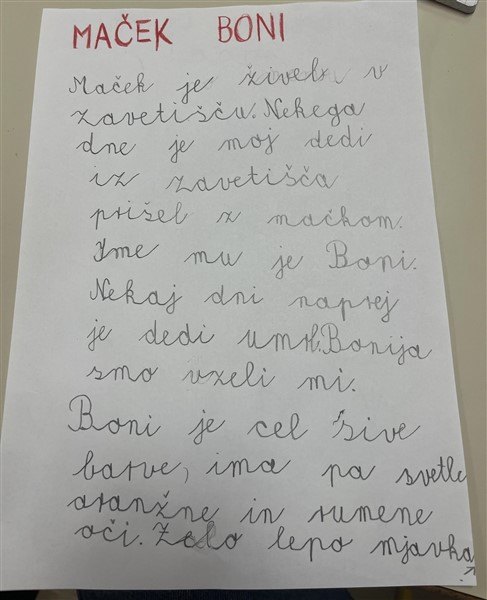 MAČEK BONI
Maček je živel v
zavetišču. Nekega
dne je moj dedi
iz zavetišča
prišel z mačkom.
Ime mu je Boni.
Nekaj dni naprej
je dedi umrl. Bonija
smo vzeli mi.
Boni je cel sive
barve, ima pa svetle
oranžne in rumene
oči. Zelo lepo mjavka